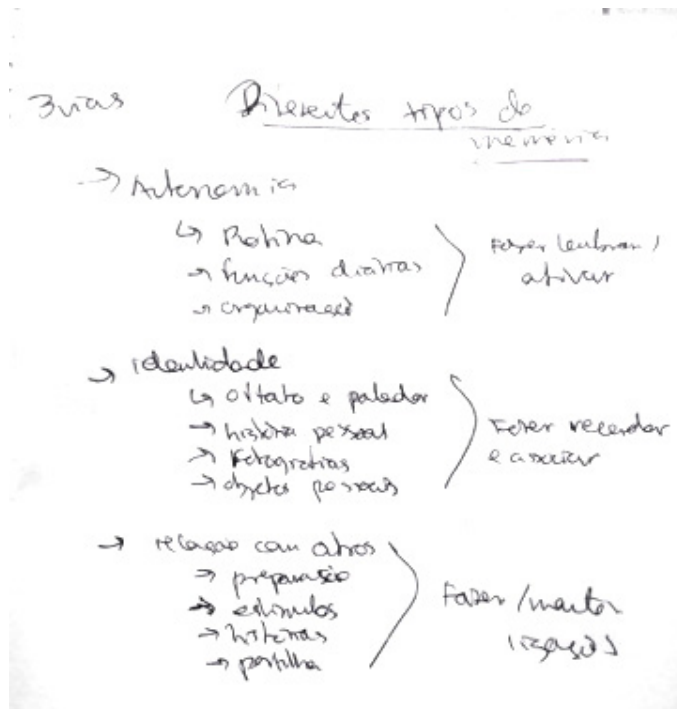 3 vias Diferentes tipos de
memória
→ Autonomia
↳ Rotina
→ funções diárias
→ organização
Fazer lembrar /
ativar
→ identidade
↳ olfato e paladar
→ história pessoal
→ fotografias
→ objetos pessoais
Fazer recordar
e associar
→ relação com outros
→ preparação
→ estímulos
→ histórias
→ partilha
Fazer / manter
ligações